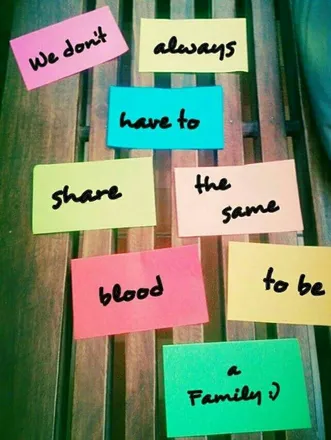 We don't
always
have to
share
the
same
blood
to be
a
Family :)